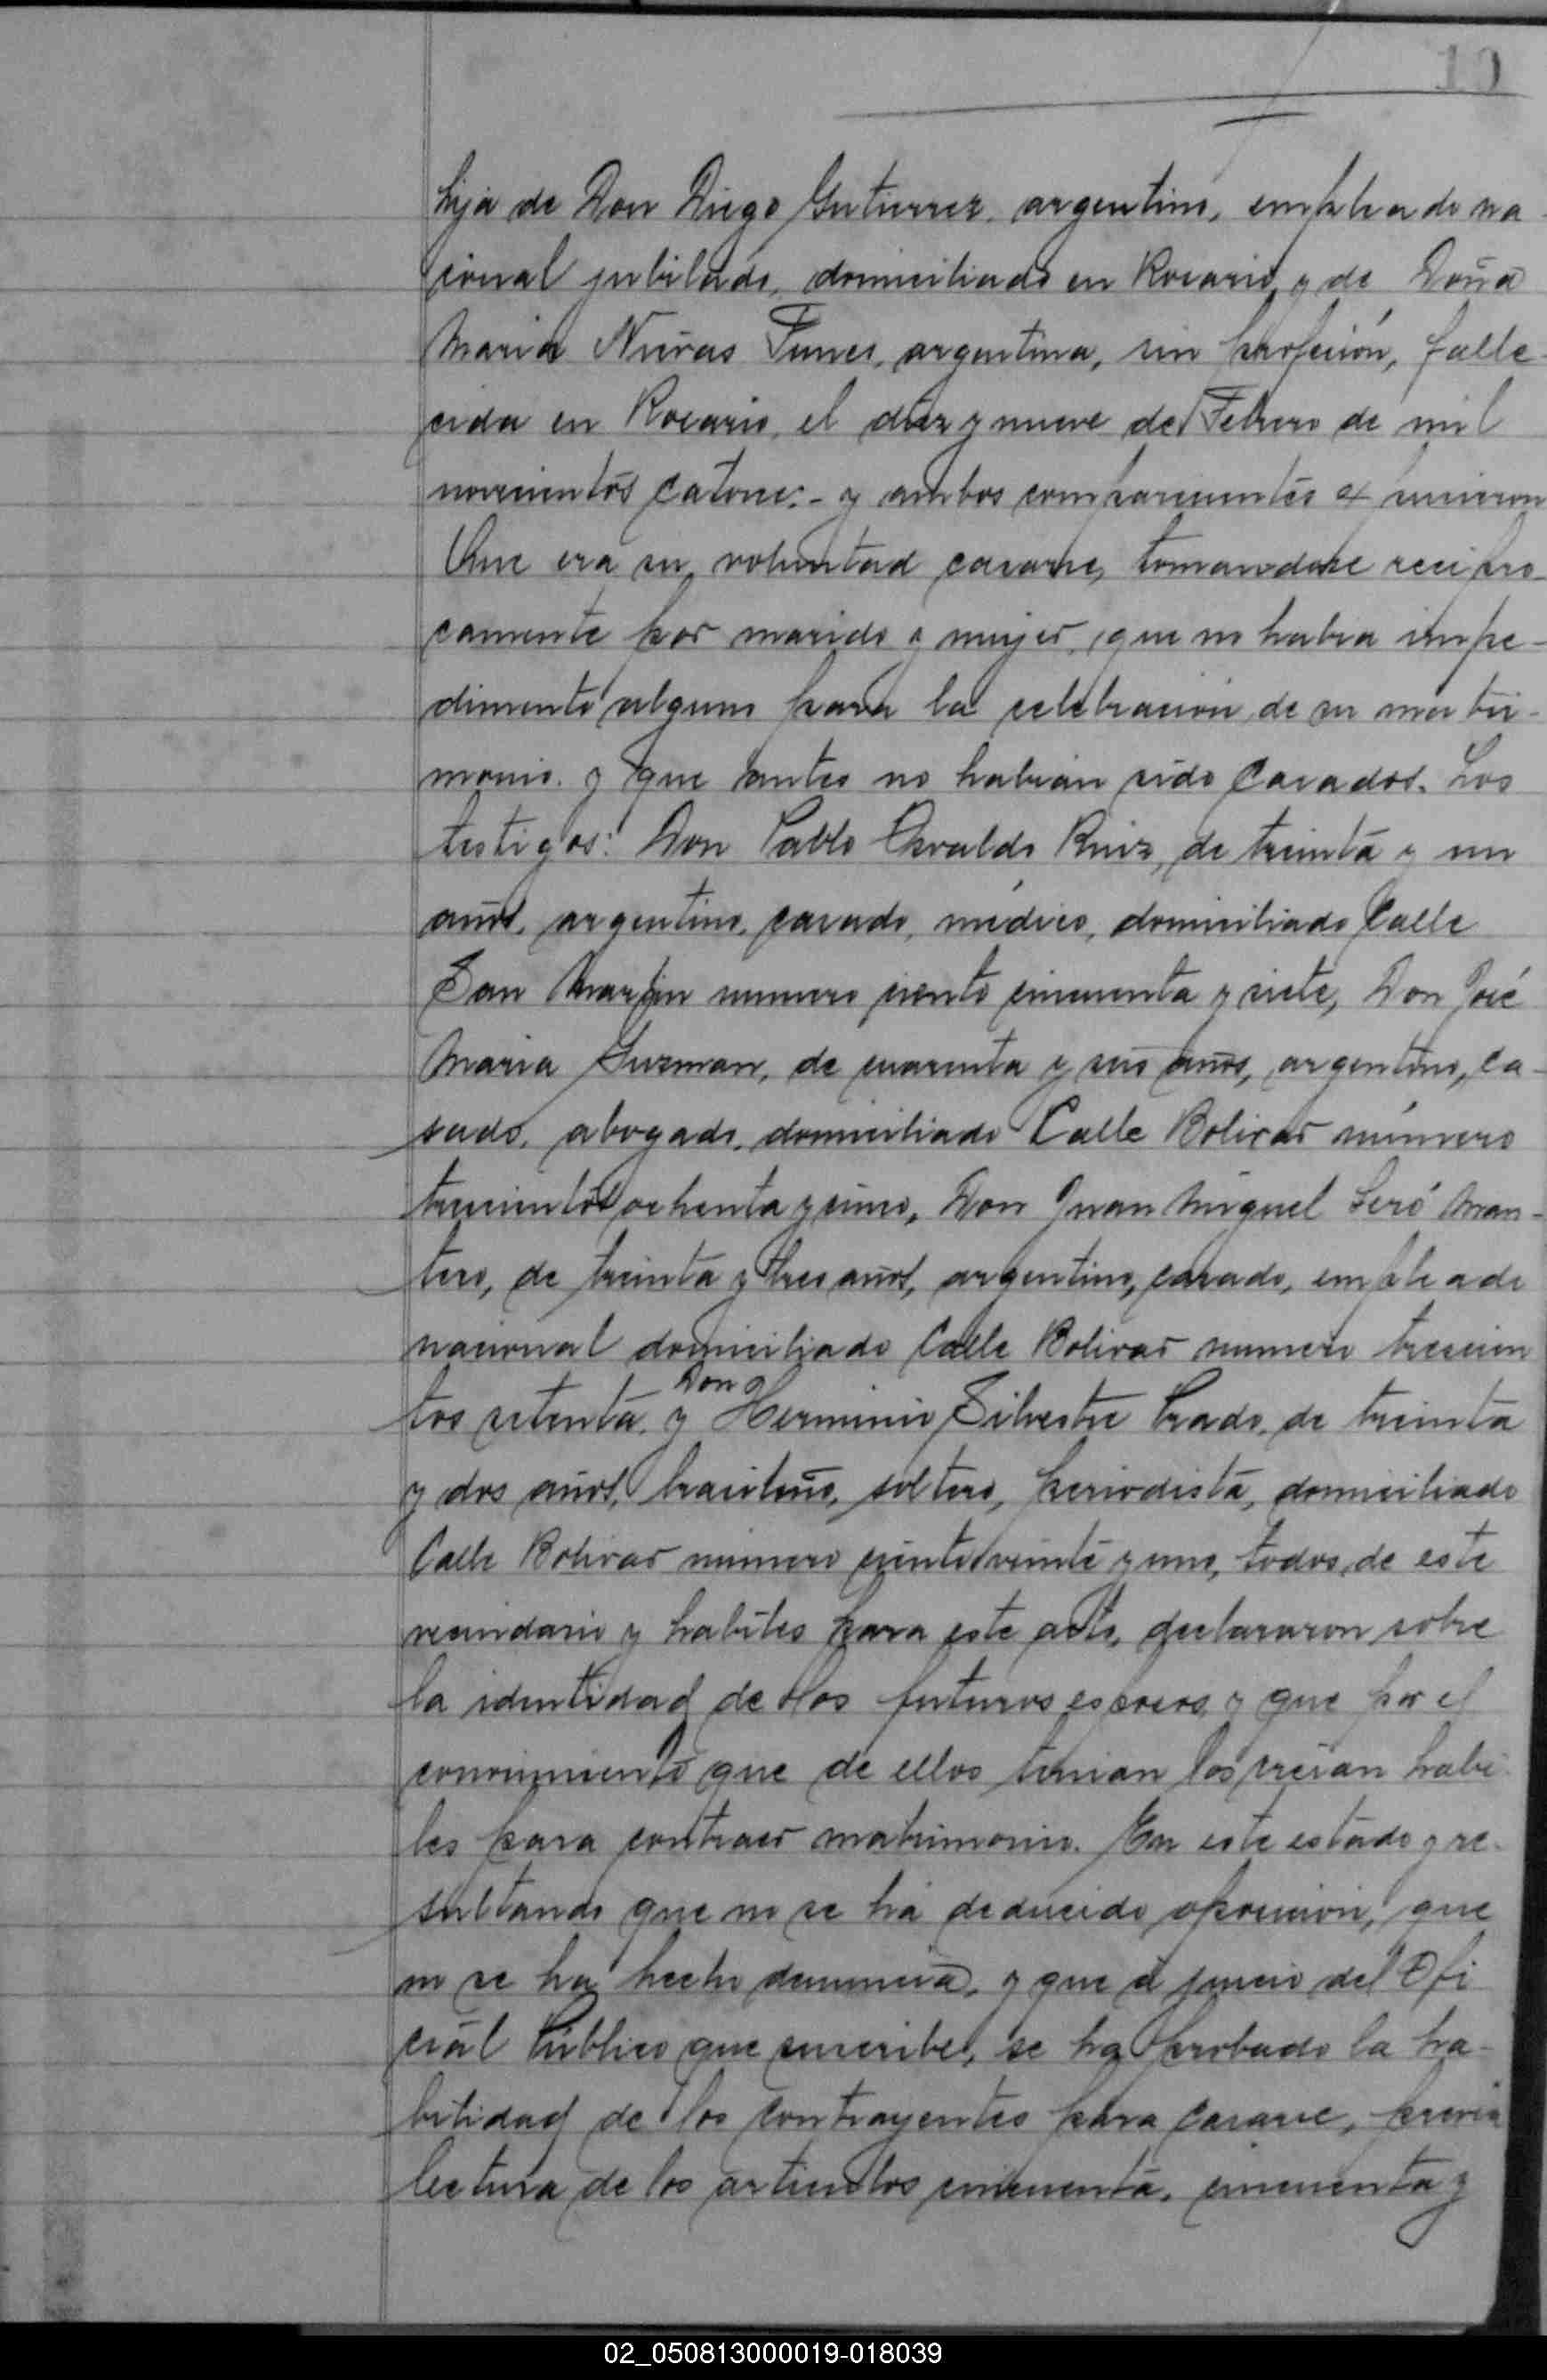 10
hija de Don Diego Gutierrez, argentino, empleado na-
cional jubilado, domiciliado en Rosario, y de Doña
Maria Nieves Funes, argentina, sin profesión, falle-
cida en Rosario, el diez y nueve de Febrero de mil
novecientos catorce.- y ambos comparecientes expusieron
Que era su voluntad casarse, tomandose recipro-
camente por marido y mujer, que no habia impe-
dimento alguno para la celebración de su matri-
monio. y que antes no habian sido casados. Los
testigos: Don Pablo Osvaldo Ruiz, de treinta y un
años, argentino, casado, médico, domiciliado Calle
San Martin numero ciento cincuenta y siete, Don José
Maria Guzman, de cuarenta y seis años, argentino, ca-
sado, abogado, domiciliado Calle Bolivar número
trescientos ochenta y cinco, Don Juan Miguel Seró Man-
tero, de treinta y tres años, argentino, casado, empleado
nacional domiciliado Calle Bolivar numero trescien
Don
tos setenta, y Herminio Silvestre Prado, de treinta
y dos años, brasileño, soltero, periodista, domiciliado
Calle Bolivar numero ciento veinte y uno, todos de este
vecindario y habiles para este acto, declararon sobre
la identidad de los futuros esposos, y que por el
conocimiento que de ellos tenian los creian habi-
les para contraer matrimonio. En este estado y re-
sultando que no se há deducido oposición, que
no se ha hecho denuncia, y que á juicio del Ofi
cial Público que suscribe, se ha probado la ha-
bilidad de los contrayentes para casarse, previa
lectura de los articulos cincuenta, cincuenta y
02_050813000019-018039